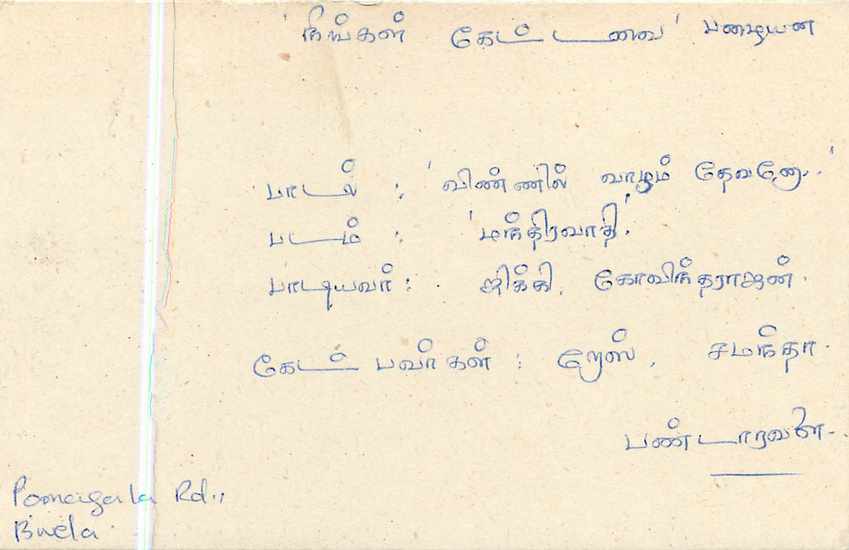 'நீங்கள் கேட்டவை' பழையன
பாடல் : 'விண்ணில் வாழும் தேவனே..'
படம் : 'மந்திரவாதி.'
பாடியவர் : ஜிக்கி, கோவிந்தராஜன்.
கேட்பவர்கள் : றேஸ், சமந்தா.
பண்டாரவளை.
Rd.,
B'wela.